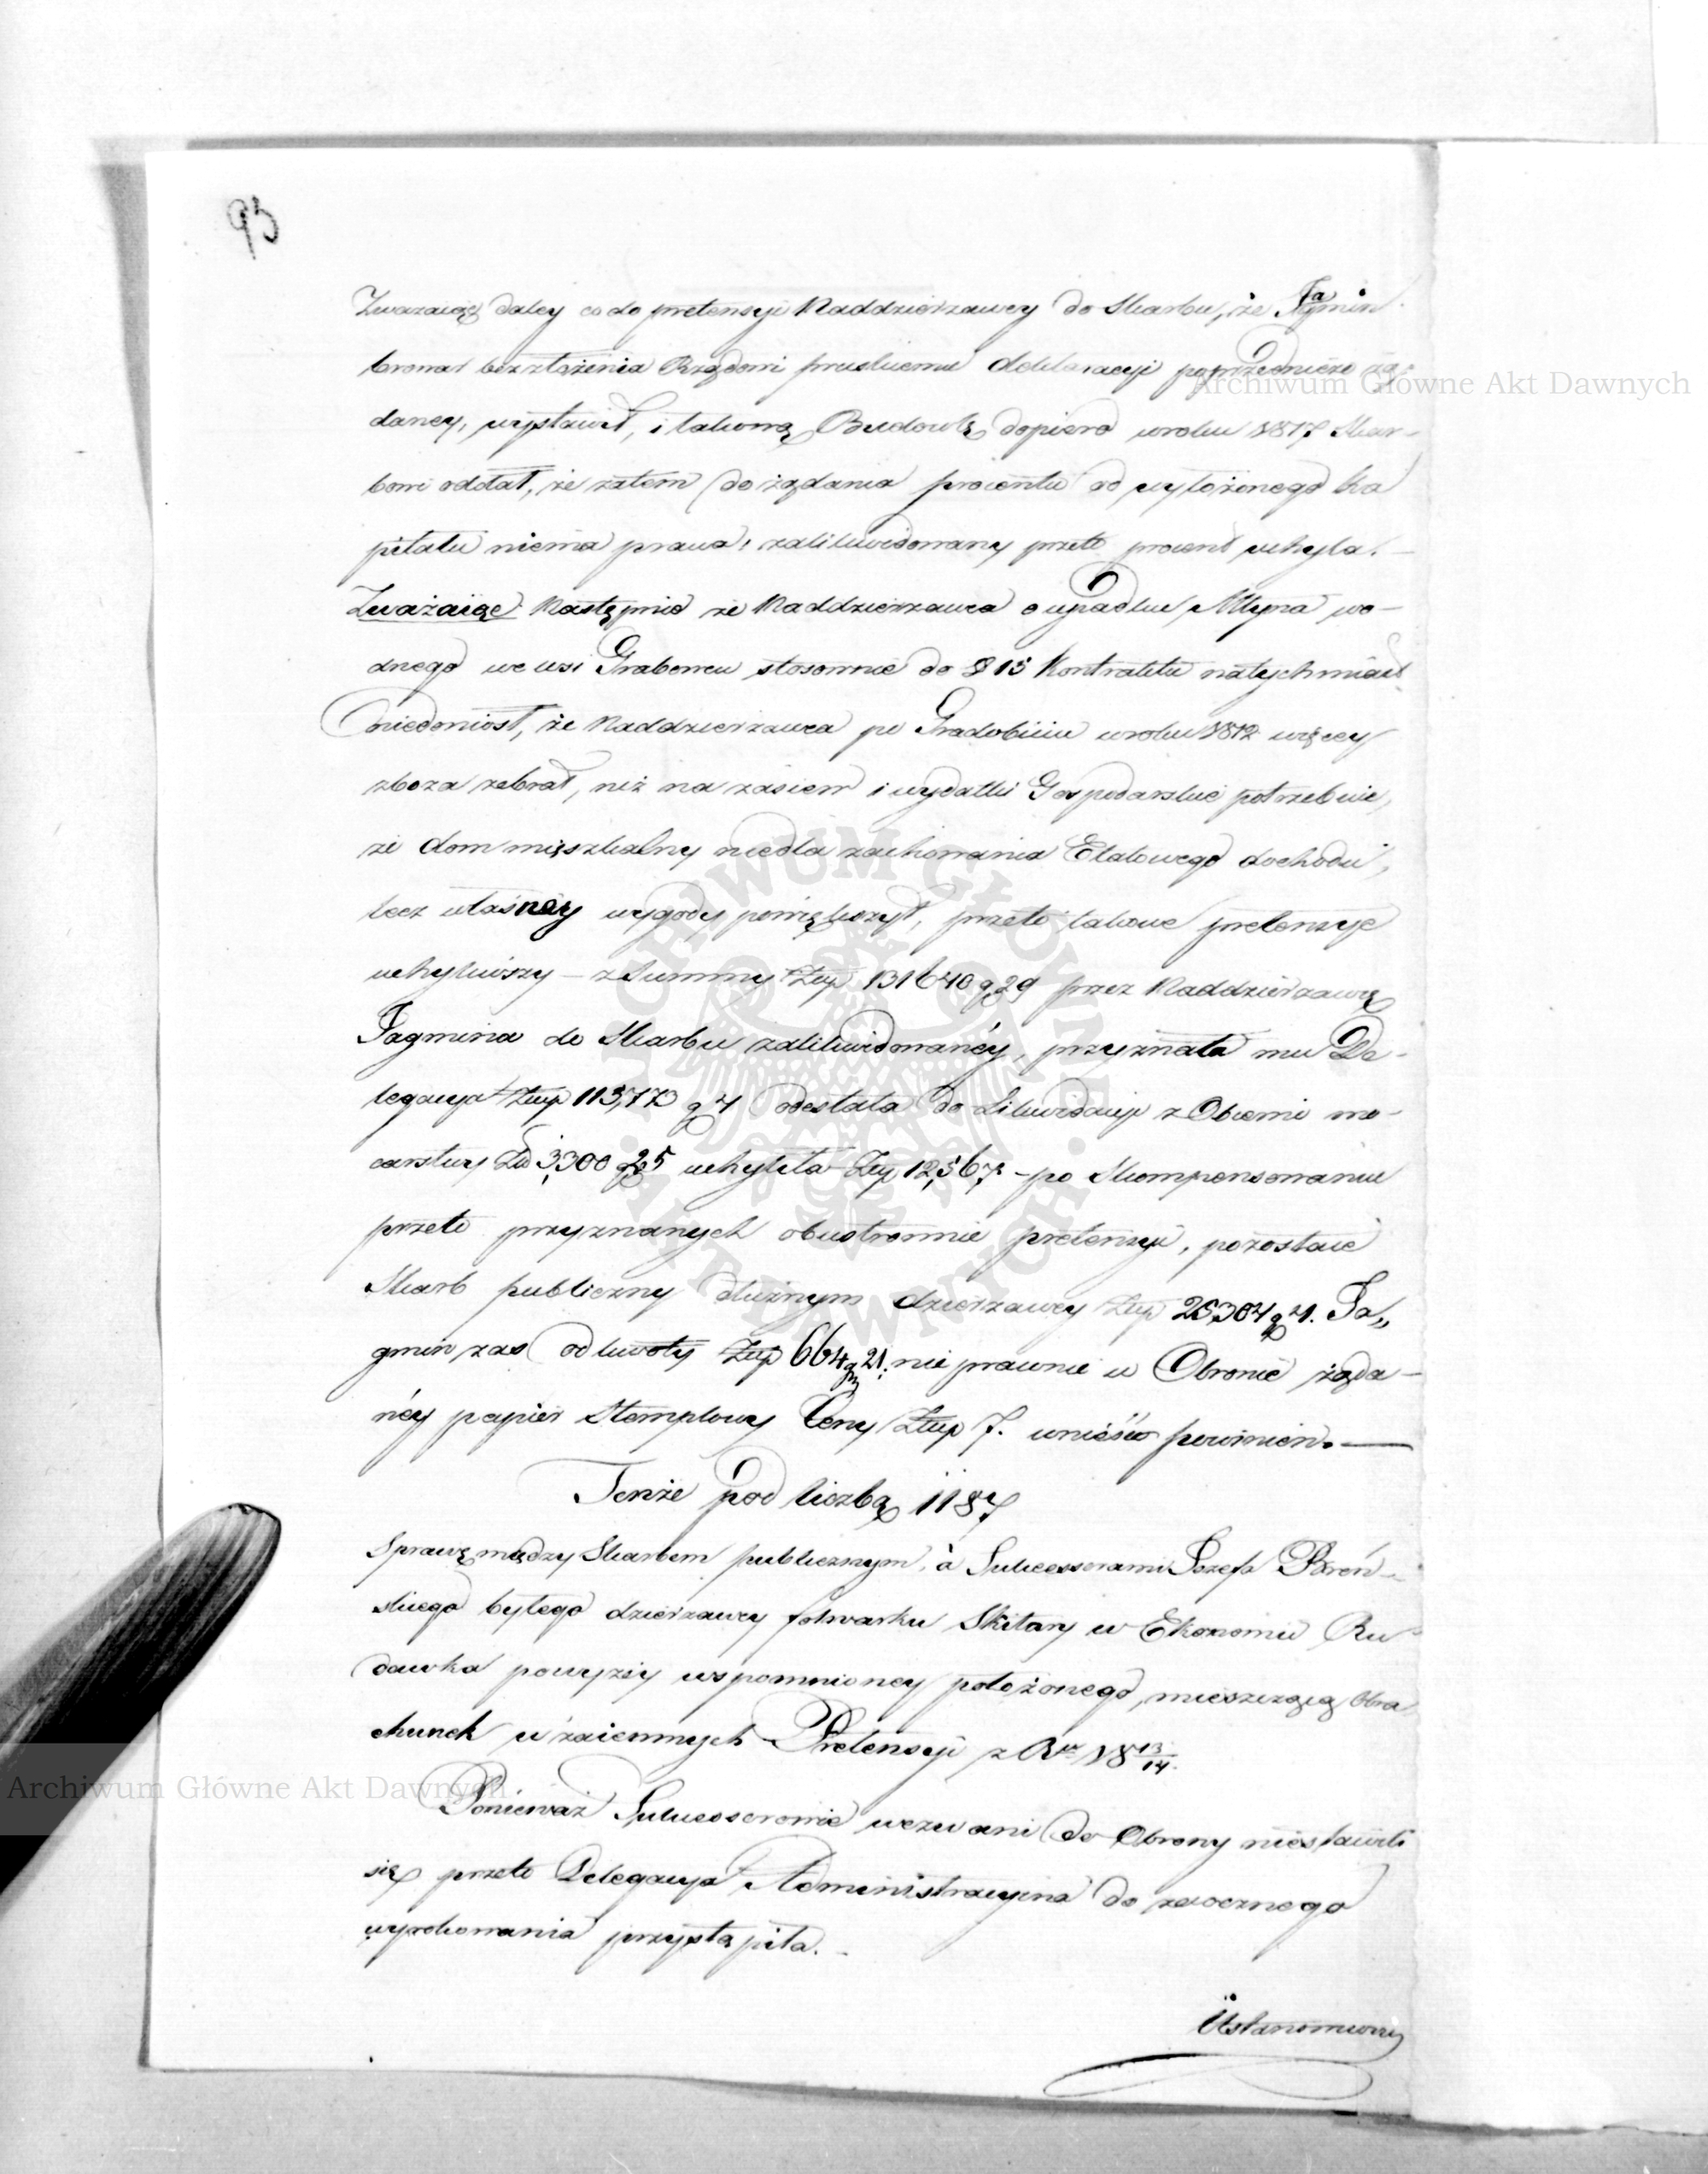 93
Zwazaiąc daley co do pretensyi Naddzierzawcy do Skarbu, że Jagmin
browar bez złożenia Rządowi pruskiemu deklaracyi poprzedniczo żą-
daney, wystawił, i takową Budowlę dopiero w roku 1817 Skar-
bowi oddał, że zatem do żądania procentu od wyłożonego ka
pitału niema prawa, zalikwidowany przeto procent uchyla. —
Zważaiąc Następnie że Naddzierzawca o upadku Młyna wo-
dnego we wsi Grabowcu stosownie do § 15 Kontraktu natychmiast
niedoniósł, że Naddzierzawca po Gradobiciu w roku 1812 więcey
zboza zebrał, niż na zasiew i wydatki Gospodarskie potrzebuie,
że dom mięszkalny niedla zachowania Etatowego dochodu,
lecz własnéy wygody powiększył, przeto takowe pretensye
uchyliwszy – z Summy Złłp 131640 g 29 przez Naddzierzawcę
Jagmina do Skarbu zalikwidowanéy, przyznała mu De-
legacya Złłp 113,773 g 4 odesłała do Likwidacyi z Obcemi mo-
carstwy Złł 3,300 g 25 uchyliła Złłp 12,567 – po Skompensowaniu
przeto przyznanych obustronnie pretensyi, pozostaie
Skarb publiczny dłużnym dzierzawcy Złłp 25,304 g 4. Ja„
gmin zas od kwoty Złłp 664 g 21. nie prawnie w Obronie żąda-
néy papier Stemplowy Ceny Złłp 7. wnieść powinien. —
Tenże pod liczbą 1187
Sprawę między Skarbem publicznym, à Sukcessorami Jozefa Broń-
skiego byłego dzierzawcy folwarku Skitary w Ekonomii Ru
dawka powyżéy wspomnioney położonego, mieszczącą Obra
chunek w zaiemnych Pretensyi z Rku 18 13/14.
Ponieważ Sukcessorowie wezwani do Obrony niestawili
się przeto Delegacya Administracyina do zaocznego
wyrokowania przystąpiła. –
Ustanowiwszy
Archiwum Główne Akt Dawnych
Archiwum Główne Akt Dawnych
ARCHIWUM GŁÓWNE AKT DAWNYCH